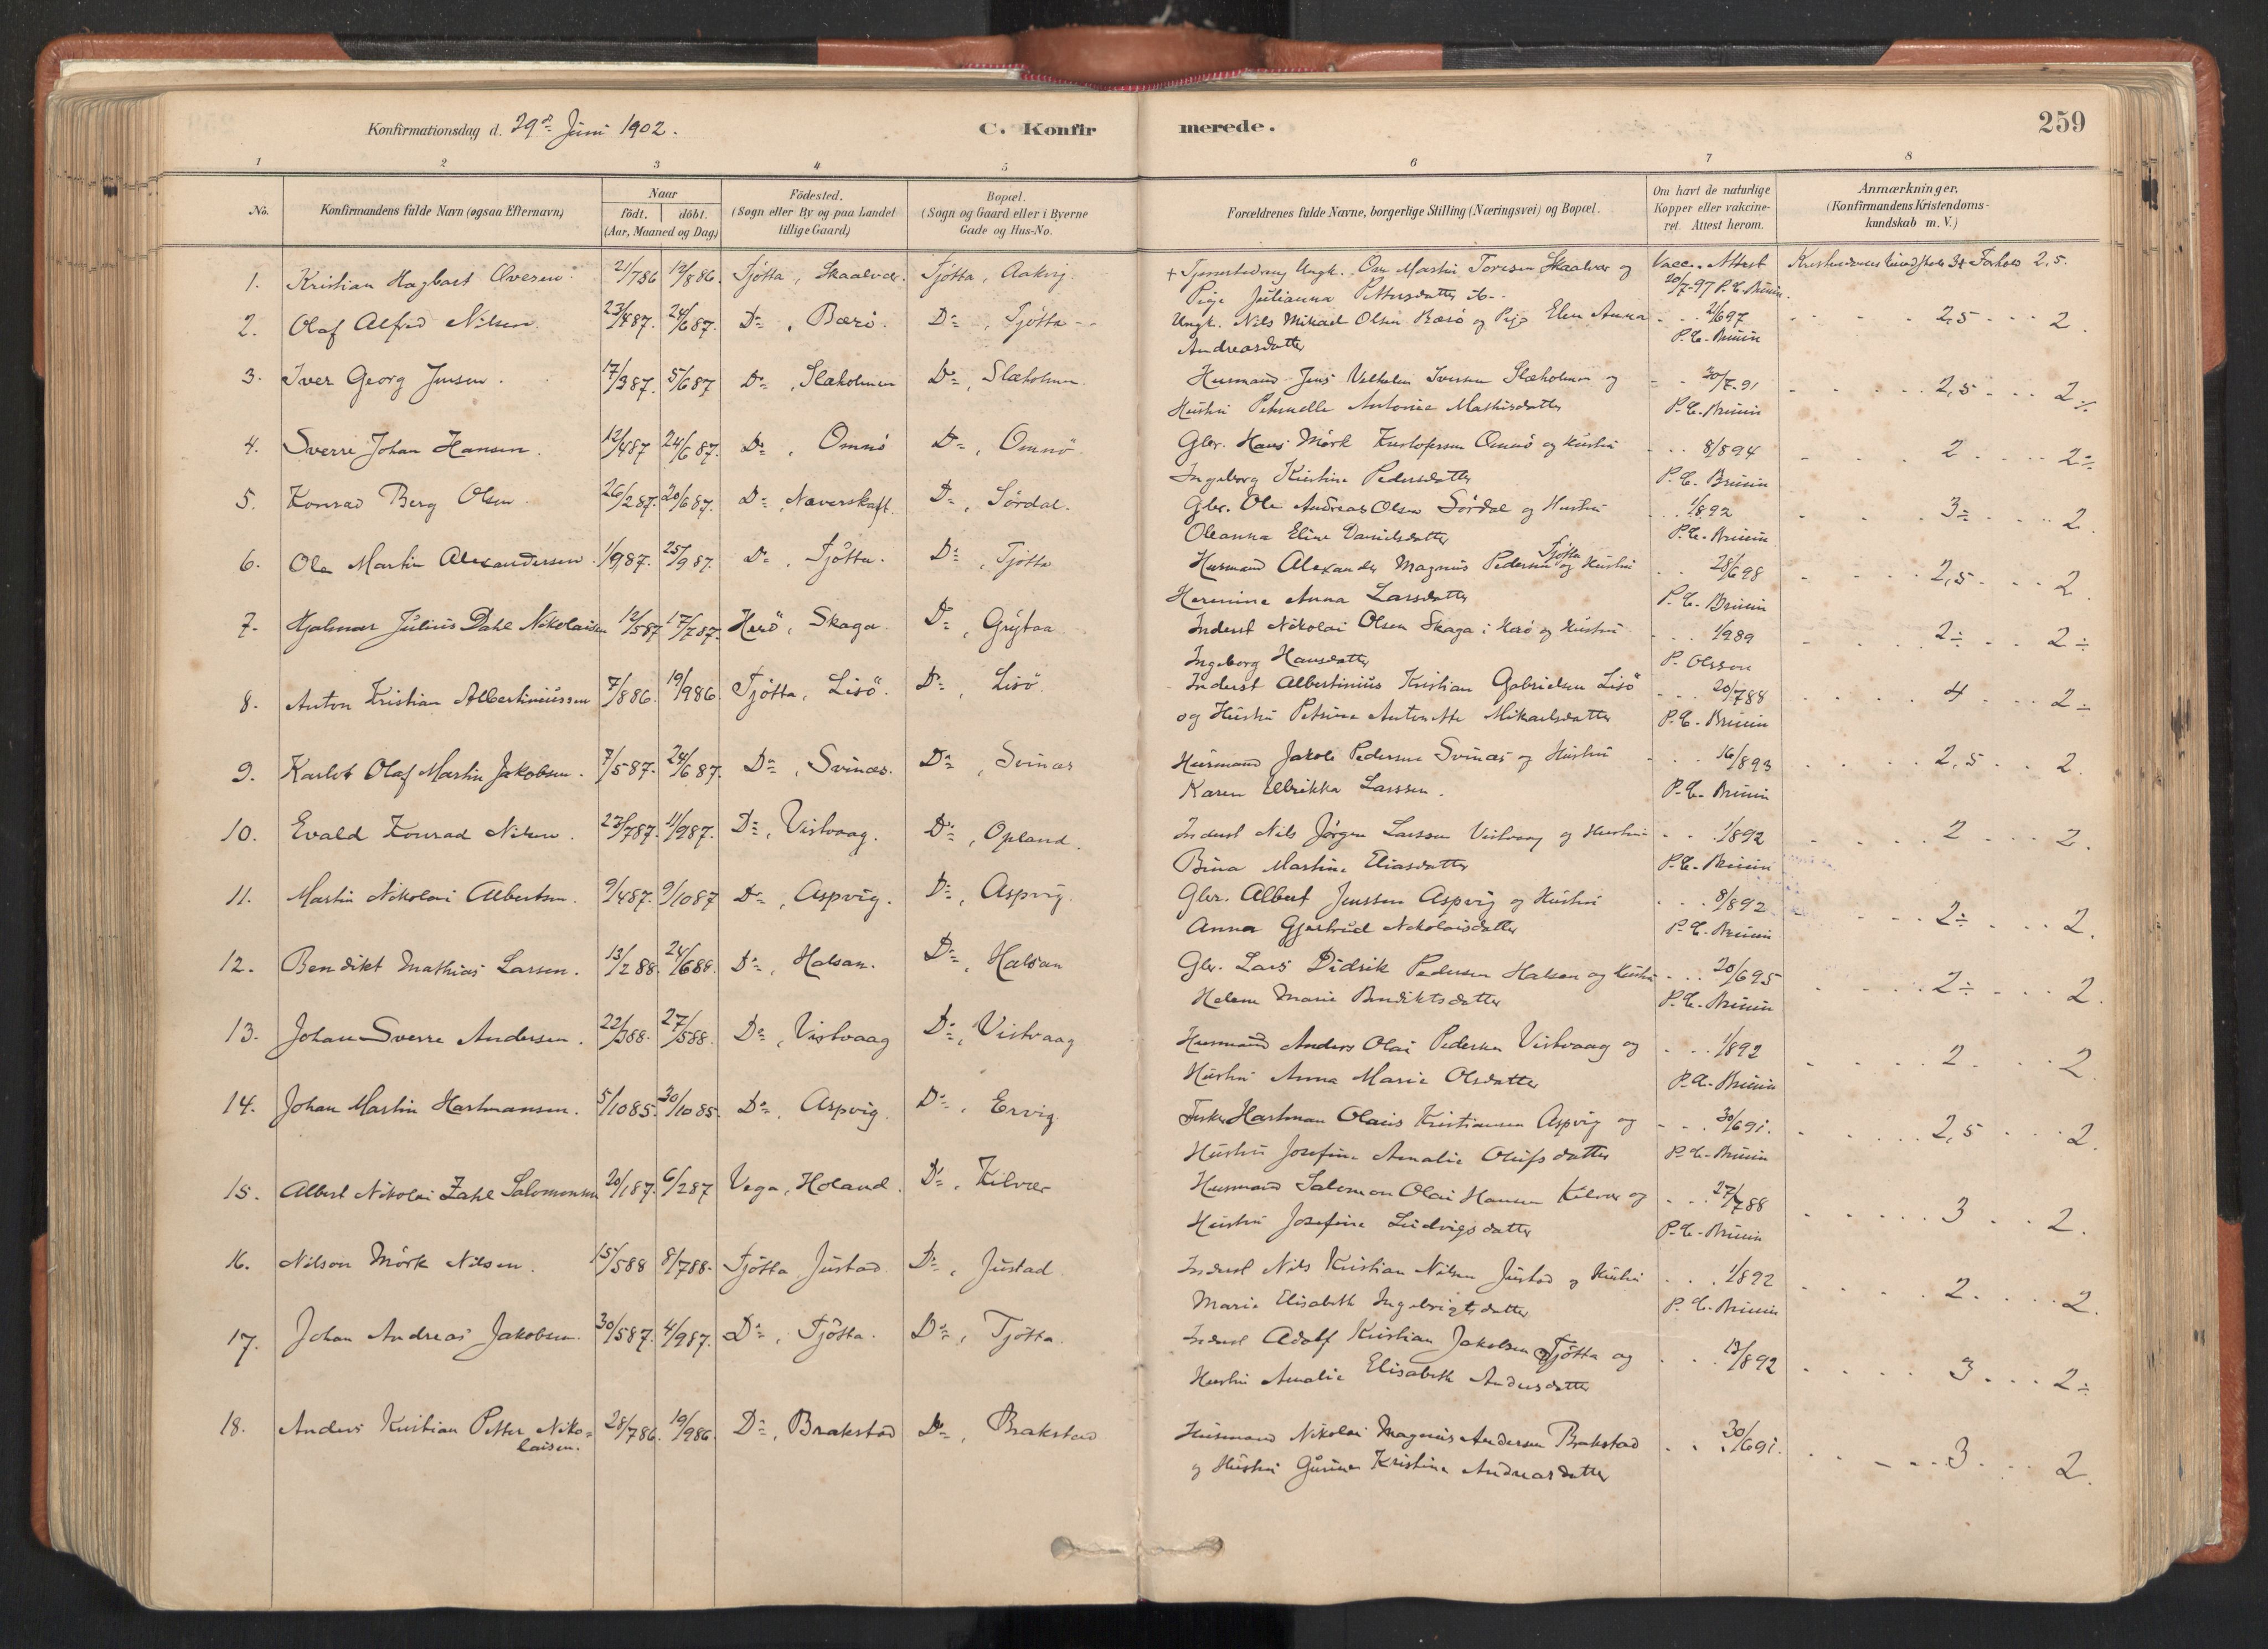 Konfirmationsdag d. 29de Juni 1902.
C. Konfirmerede.
259
1 2 3 4 5 6 7 8
No.
Konfirmandens fulde Navn (ogsaa Efternavn)
Naar
födt. döbt.
(Aar, Maaned og Dag)
Födested.
(Sogn eller By og paa Landet
tillige Gaard)
Bopæl.
(Sogn og Gaard eller i Byerne
Gade og Hus-No.
Forældrenes fulde Navne, borgerlige Stilling (Næringsvei) og Bopæl.
Om havt de naturlige
Kopper eller vakcine-
ret. Attest herom.
Anmærkninger.
(Konfirmandens Kristendoms-
kundskab m. V.)
1. Kristian Hagbart Olvesen 21/786 12/886. Tjötta, Skaalvær. Tjötta, Aakvig. Ungk. Ove Martin Toresen Skaalvær og Vacc. Attest Kristendomskundskab 3+ Forhold 2,5.
Pige Julianna Pettersdatter ib. 20/7-97 P. C. Brinin.
2. Olaf Alfred Nilsen 23/487. 24/687. Do, Bærö. Do, Tjötta Ungk. Nils Mikael Olsen Bærö og Pige Elen Anna 2/697 2,5 2.
Andreasdatter P. C. Brinin
3. Iver Georg Jensen. 17/387. 5/687 Do, Slæholmen Do, Slæholmen Husmand Jens Vilhelm Iversen Slæholmen og 30/7-91 2,5 2 ÷
Hustru Petrnelle Antonie Mathisdatter P. C. Brinin
4. Sverre Johan Hansen. 12/487 24/687. Do, Omnö Do, Omnö Gbr. Hans Mörk Kristofersen Omnö og Hustru 8/894 2 2÷
Ingeborg Kristine Pedersdatter P. C. Brinin
5. Konrad Berg Olsen 26/287. 20/687. Do, Naverskaft. Do, Sördal. Gbr. Ole Andreas Olsen Sördal og Hustru 1/8.92 3÷ 2.
Oleanna Eline Danielsdatter P. C. Brinin
6. Ole Martin Alexandersen 1/987. 25/987. Do, Tjötta. Do, Tjötta Husmand Alexander Magnus Pedersen Tjötta og Hustru 28/698 2,5 2.
Hermine Anna Larsdatter P. C. Brinin
7. Hjalmar Julius Dahl Nikolaisen 12/587 17/787. Herö, Skaga. Do, Grytaa Inderst Nikolai Olsen Skaga i Herö og Hustru 1/989 2÷ 2÷
Ingeborg Hansdatter P. Olsson
8. Anton Kristian Albertiniussen 7/886. 19/986. Tjötta, Lisö. Do, Lisö. Inderst Albertinius Kristian Gabrielsen Lisö 20/788 4 2÷
og Hustru Petrine Antonette Mikaelsdatter P. C. Brinin
9. Karlot Olaf Martin Jakobsen. 7/587. 24/687. Do, Svinæs. Do, Svinæs Husmand Jakob Pedersen Svinæs og Hustru 16/893 2,5 2.
Karen Ulrikka Larssen. P. C. Brinin
10. Evald Konrad Nilsen. 23/787. 11/987. Do, Vistvaag. Do, Opland. Inderst Nils Jörgen Larssen Vistvaag og Hustru 1/892 2 2.
Bina Martine Eliasdatter P. C. Brinin
11. Martin Nikolai Albertsen. 9/487. 9/1087 Do, Aspvig. Do, Aspvig. Gbr. Albert Jenssen Aspvig og Hustru 8/892 2÷ 2.
Anna Gjertrud Nikolaisdatter P. C. Brinin
12. Bendikt Mathias Larsen. 13/288 24/688. Do, Halsan. Do, Halsan Gbr. Lars Didrik Pedersen Halsan og Hustru 20/695 2÷ 2.
Helene Marie Bendiktsdatter P. C. Brinin
13. Johan Sverre Andersen. 22/388. 27/588. Do, Vistvaag Do, Vistvaag Husmand Anders Olai Pedersen Vistvaag og 1/892 2 2.
Hustru Anna Marie Olsdatter P. C. Brinin
14. Johan Martin Hartmansen. 5/1085. 30/1085. Do, Aspvig. Do, Ervig. Fisker Hartman Olaus Kristiansen Aspvig og 30/691. 2,5 2.
Hustru Josefine Amalie Olufsdatter P. C. Brinin
15. Albert Nikolai Zahl Salomonsen 20/187. 6/287 Vega, Holand. Do, Kilvær Husmand Salomon Olai Hansen Kilvær og 27/788 3 2.
Hustru Josefine Ludvigsdatter P. C. Brinin
16. Nilson Mörk Nilsen. 15/588 8/788. Tjötta Justad Do, Justad Inderst Nils Kristian Nilsen Justad og Hustru 1/892 2. 2.
Marie Elisabeth Ingebrigtsdatter P. C. Brinin
17. Johan Andreas Jakobsen. 30/587. 4/987. Do, Tjötta. Do, Tjötta. Inderst Adolf Kristian Jakobsen Tjötta og 13/892 3 2÷
Hustru Amalie Elisabeth Andersdatter
18. Anders Kristian Petter Niko= 28/786. 19/986. Do, Brakstad Do, Brakstad Husmand Nikolai Magnus Andersen Brakstad 30/691. 3 2.
laisen. og Hustru Gurine Kristine Andreasdatter